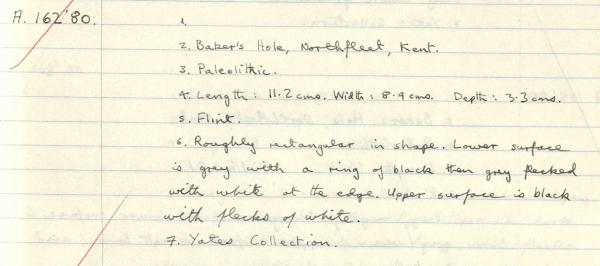 A. 162'80.
1.
2. Baker's Hole, Northfleet, Kent.
3. Paleolithic.
4. Length : 11.2 cms. Width : 8.9 cms. Depth : 3.3 cms.
5. Flint.
6. Roughly rectangular in shape. Lower surface
is grey with a ring of black then grey flecked
with white at the edge. Upper surface is black
with flecks of white.
7. Yates Collection.